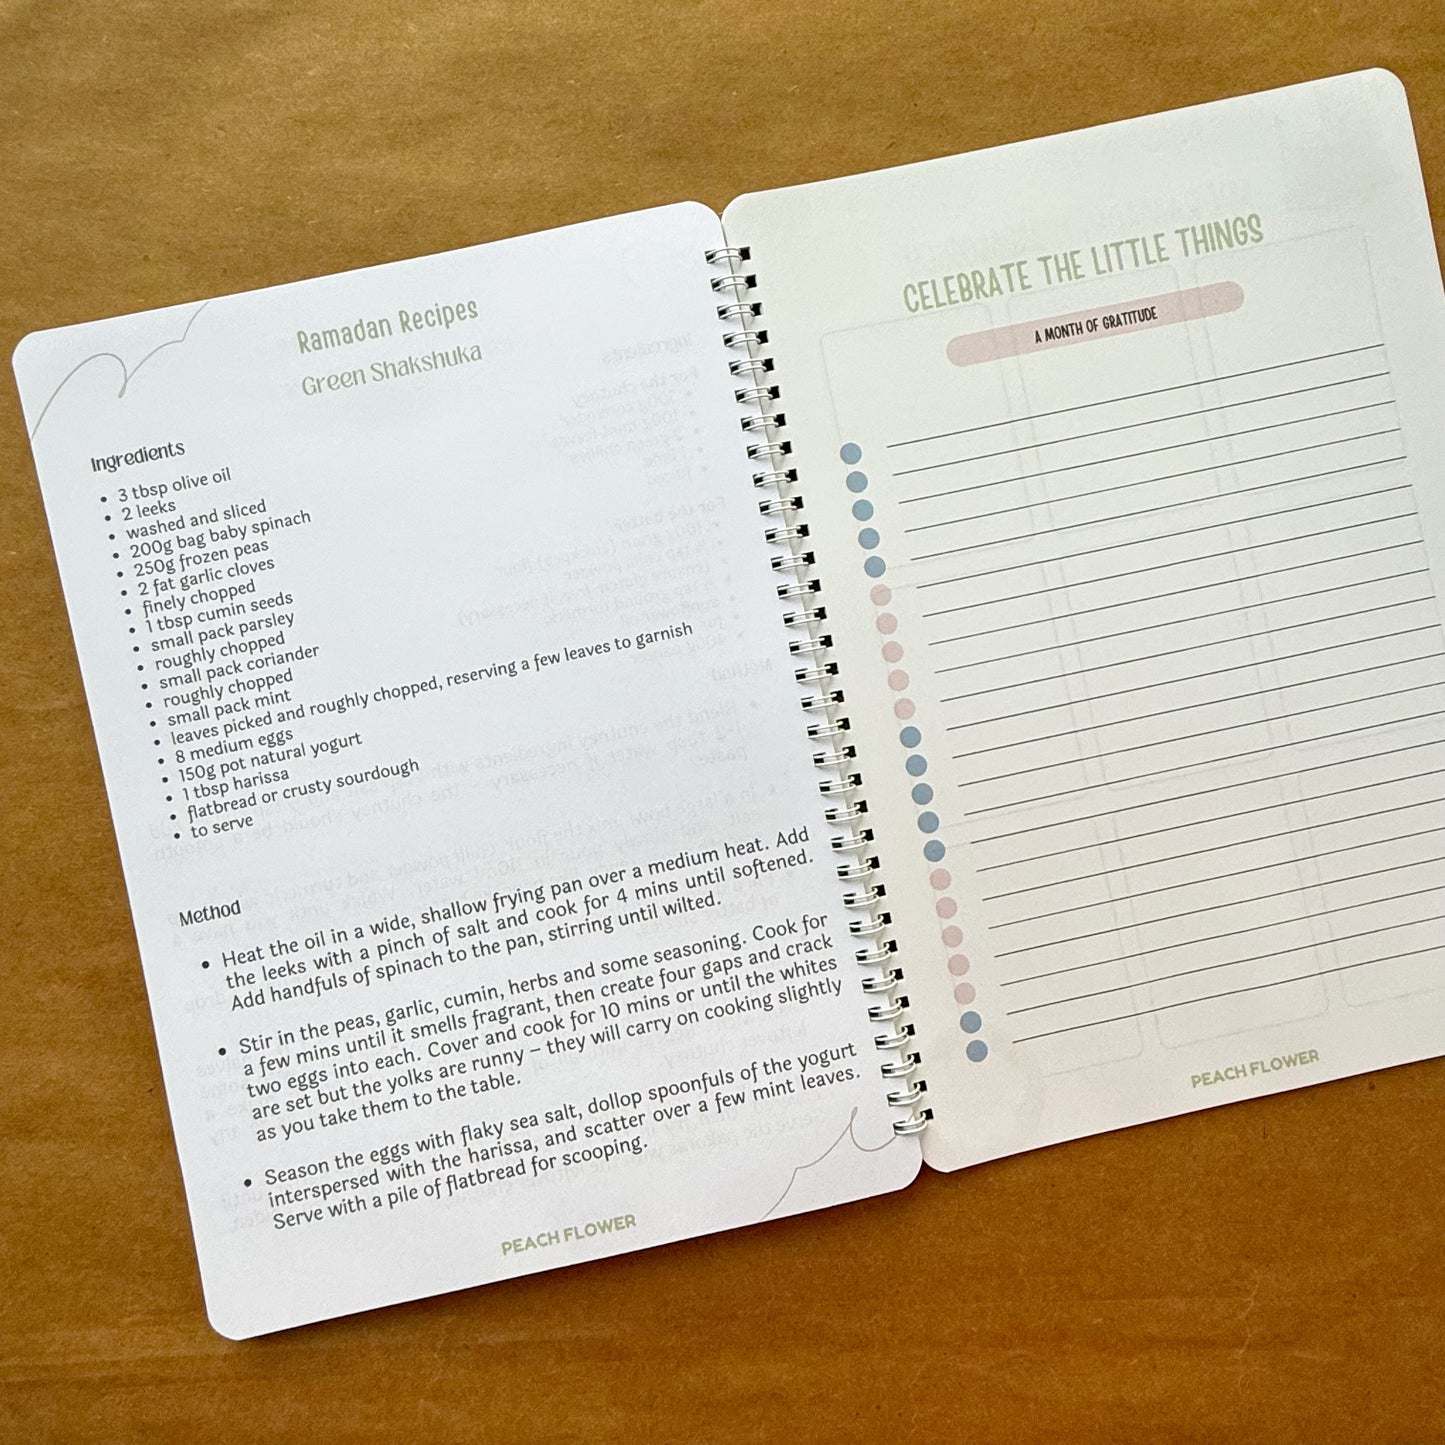 Ramadan Recipes
Green Shakshuka
Ingredients
• 3 tbsp olive oil
• 2 leeks
• washed and sliced
• 200g bag baby spinach
• 250g frozen peas
• 2 fat garlic cloves
• finely chopped
• 1 tbsp cumin seeds
• small pack parsley
• roughly chopped
• small pack coriander
• roughly chopped
• small pack mint
• leaves picked and roughly chopped, reserving a few leaves to garnish
• 8 medium eggs
• 150g pot natural yogurt
• 1 tbsp harissa
• flatbread or crusty sourdough
• to serve
Method
• Heat the oil in a wide, shallow frying pan over a medium heat. Add
the leeks with a pinch of salt and cook for 4 mins until softened.
Add handfuls of spinach to the pan, stirring until wilted.
• Stir in the peas, garlic, cumin, herbs and some seasoning. Cook for
a few mins until it smells fragrant, then create four gaps and crack
two eggs into each. Cover and cook for 10 mins or until the whites
are set but the yolks are runny – they will carry on cooking slightly
as you take them to the table.
• Season the eggs with flaky sea salt, dollop spoonfuls of the yogurt
interspersed with the harissa, and scatter over a few mint leaves.
Serve with a pile of flatbread for scooping.
PEACH FLOWER
CELEBRATE THE LITTLE THINGS
A MONTH OF GRATITUDE
PEACH FLOWER